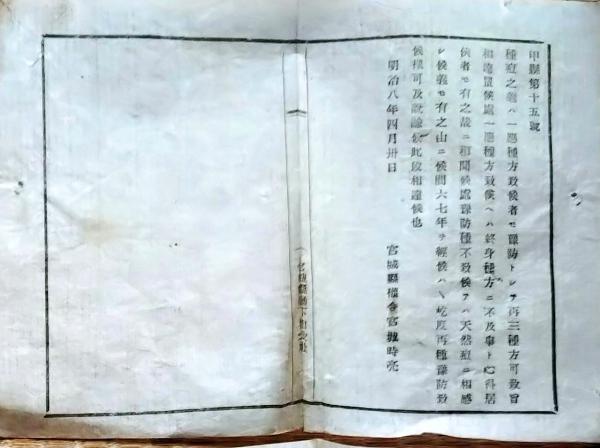 甲縣第十五號
種痘之義ハ一應種方致候者モ豫防トシテ再三種方可致旨
相達置候處一應種方致候ヘハ終身種方ニ不及事ト心得居
候者モ有之哉ニ相聞候處豫防種不致候テハ天然痘ニ相感
シ候義モ有之由ニ候間六七年ヲ經候ハヽ屹度再種豫防致
候樣可及說諭候此段相達候也
明治八年四月卅日
宮城縣權令宮城時亮